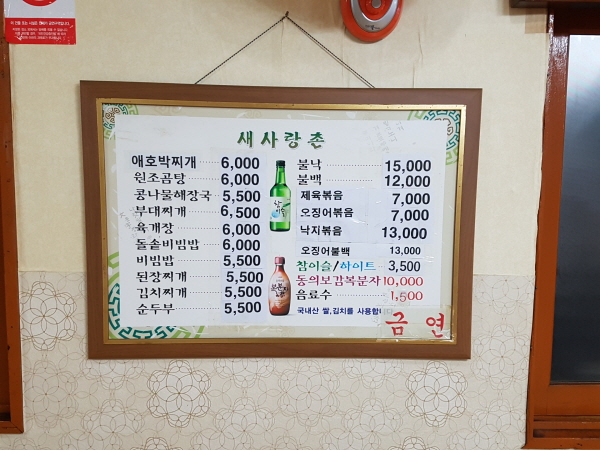 새사랑촌
애호박찌개 6,000
원조곰탕 6,000
콩나물해장국 5,500
부대찌개 6,500
육개장 6,000
돌솥비빔밥 6,000
비빔밥 5,500
된장찌개 5,500
김치찌개 5,500
순두부 5,500
불낙 15,000
불백 12,000
제육볶음 7,000
오징어볶음 7,000
낙지볶음 13,000
오징어불백 13,000
참이슬/하이트 3,500
동의보감복분자 10,000
음료수 1,500
국내산 쌀,김치를 사용합니다
금 연